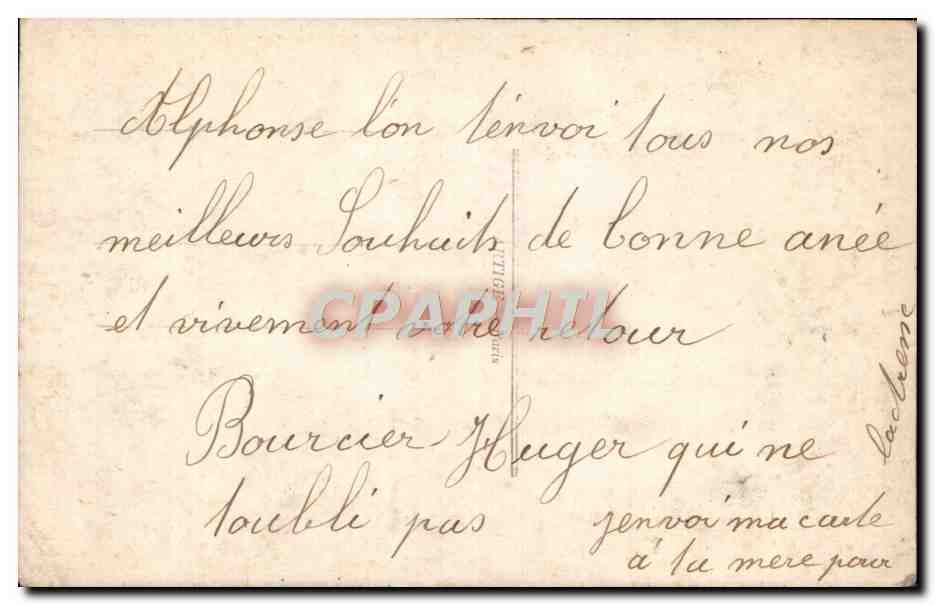 Alphonse l'on t'envoi tous nos
meilleurs Souhaits de bonne anée
et vivement votre retour
Bourcier Huger qui ne
toubli pas
jenvoi ma carte
à ta mere pour
CPAPHIL
UTIGE
Paris